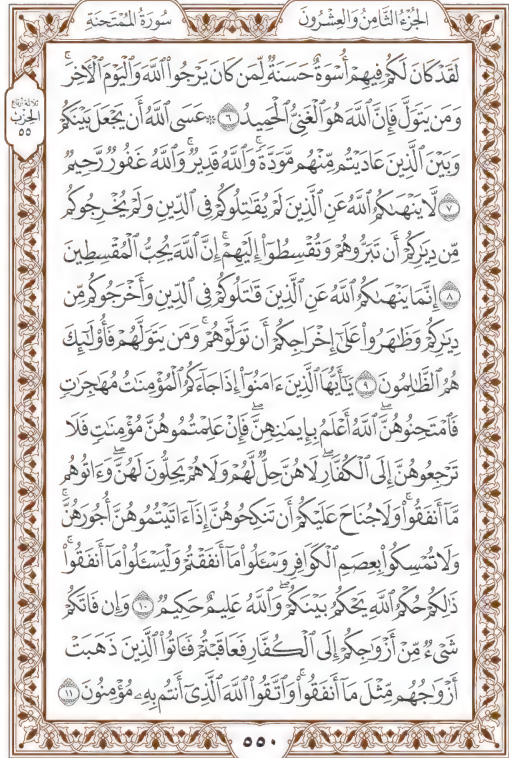 الجُزْءُ الثَّامِنُ وَالعِشْرُونَ
سُورَةُ المُمْتَحنَةِ
لَقَدْ كَانَ لَكُمْ فِيهِمْ أُسْوَةٌ حَسَنَةٌ لِّمَن كَانَ يَرْجُوا۟ ٱللَّهَ وَٱلْيَوْمَ ٱلْءَاخِرَ ۚ
وَمَن يَتَوَلَّ فَإِنَّ ٱللَّهَ هُوَ ٱلْغَنِىُّ ٱلْحَمِيدُ ٦ ۞ عَسَى ٱللَّهُ أَن يَجْعَلَ بَيْنَكُمْ
وَبَيْنَ ٱلَّذِينَ عَادَيْتُم مِّنْهُم مَّوَدَّةً ۚ وَٱللَّهُ قَدِيرٌ ۚ وَٱللَّهُ غَفُورٌ رَّحِيمٌ
٧ لَّا يَنْهَىٰكُمُ ٱللَّهُ عَنِ ٱلَّذِينَ لَمْ يُقَـٰتِلُوكُمْ فِى ٱلدِّينِ وَلَمْ يُخْرِجُوكُم
مِّن دِيَـٰرِكُمْ أَن تَبَرُّوهُمْ وَتُقْسِطُوٓا۟ إِلَيْهِمْ ۚ إِنَّ ٱللَّهَ يُحِبُّ ٱلْمُقْسِطِينَ
٨ إِنَّمَا يَنْهَىٰكُمُ ٱللَّهُ عَنِ ٱلَّذِينَ قَـٰتَلُوكُمْ فِى ٱلدِّينِ وَأَخْرَجُوكُم مِّن
دِيَـٰرِكُمْ وَظَـٰهَرُوا۟ عَلَىٰٓ إِخْرَاجِكُمْ أَن تَوَلَّوْهُمْ ۚ وَمَن يَتَوَلَّهُمْ فَأُو۟لَـٰٓئِكَ
هُمُ ٱلظَّـٰلِمُونَ ٩ يَـٰٓأَيُّهَا ٱلَّذِينَ ءَامَنُوٓا۟ إِذَا جَآءَكُمُ ٱلْمُؤْمِنَـٰتُ مُهَـٰجِرَٰتٍ
فَٱمْتَحِنُوهُنَّ ۖ ٱللَّهُ أَعْلَمُ بِإِيمَـٰنِهِنَّ ۖ فَإِنْ عَلِمْتُمُوهُنَّ مُؤْمِنَـٰتٍ فَلَا
تَرْجِعُوهُنَّ إِلَى ٱلْكُفَّارِ ۖ لَا هُنَّ حِلٌّ لَّهُمْ وَلَا هُمْ يَحِلُّونَ لَهُنَّ ۖ وَءَاتُوهُم
مَّآ أَنفَقُوا۟ ۚ وَلَا جُنَاحَ عَلَيْكُمْ أَن تَنكِحُوهُنَّ إِذَآ ءَاتَيْتُمُوهُنَّ أُجُورَهُنَّ ۚ
وَلَا تُمْسِكُوا۟ بِعِصَمِ ٱلْكَوَافِرِ وَسْـَٔلُوا۟ مَآ أَنفَقْتُمْ وَلْيَسْـَٔلُوا۟ مَآ أَنفَقُوا۟ ۚ
ذَٰلِكُمْ حُكْمُ ٱللَّهِ ۖ يَحْكُمُ بَيْنَكُمْ ۚ وَٱللَّهُ عَلِيمٌ حَكِيمٌ ١٠ وَإِن فَاتَكُمْ
شَىْءٌ مِّنْ أَزْوَٰجِكُمْ إِلَى ٱلْكُفَّارِ فَعَاقَبْتُمْ فَـَٔاتُوا۟ ٱلَّذِينَ ذَهَبَتْ
أَزْوَٰجُهُم مِّثْلَ مَآ أَنفَقُوا۟ ۚ وَٱتَّقُوا۟ ٱللَّهَ ٱلَّذِىٓ أَنتُم بِهِۦ مُؤْمِنُونَ ١١
ثلاثة أرباع
الحِزْب
٥٥
٥٥٠